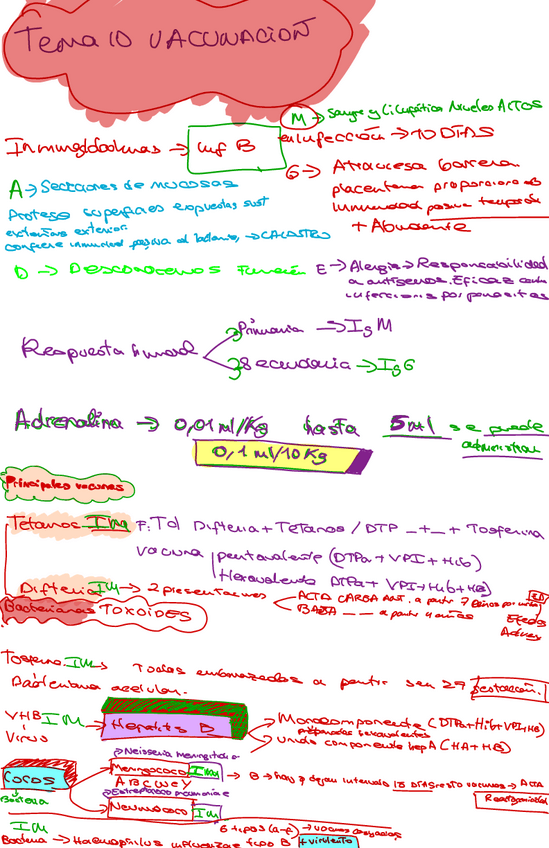 Tema 10 VACUNACION
M → Sangre y
en infección → 10 DIAS
Inmunoglobulinas → Linf B
G → Atraviesa barrera
placentaria proporciona
inmunidad pasiva temporal
+ Abundante
A → Secreciones de mucosas
Protege superficies expuestas
exterior
confiere inmunidad pasiva al → CALOSTRO
D → Desconocemos Función
E → Alergia → Responsabilidad
a antígenos. Eficaz
infecciones por parásitos
Respuesta humoral
Primaria → Ig M
Secundaria → IgG
Adrenalina → 0,01 ml/Kg hasta 5 ml se puede
administrar
0,1 ml/10 Kg
Principales vacunas
Tetanos IM F: Tol Difteria + Tetanos / DTP _+_ + Tosferina
vacuna pentavalente (DTPa + VPI + Hib)
Hexavalente DTPa + VPI + Hib + HB)
Difteria IM → 2 presentaciones
ACTA CARGA ANT. a partir 7
BAJA _ _ a partir
Bacterianas TOXOIDES
Tosferina IM → Todas embarazadas a partir sem 27 gestación.
Bacteriana acelular.
VHB IM → Hepatitis B
Virus
Monocomponente (DTPa + Hib + VPI + HB)
preparados hexavalentes
unido componente hep A (HA + HB)
Cocos
Bacteria
→ Neisseria Meningitidis
Meningococo IM
A B C W Y
→ B → hay q dejar intervalo 15 DIAS resto vacunas → ALTA
Reactogenicidad
→ Estreptococo pneumoniae
Neumococo IM
IM
6 tipos (a-f) → vacunas conjugadas
Bacteria → Haemophilus influenzae tipo B + virulento